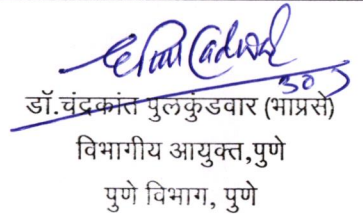 डॉ.चंद्रकांत पुलकुंडवार (भाप्रसे)
विभागीय आयुक्त,पुणे
पुणे विभाग, पुणे